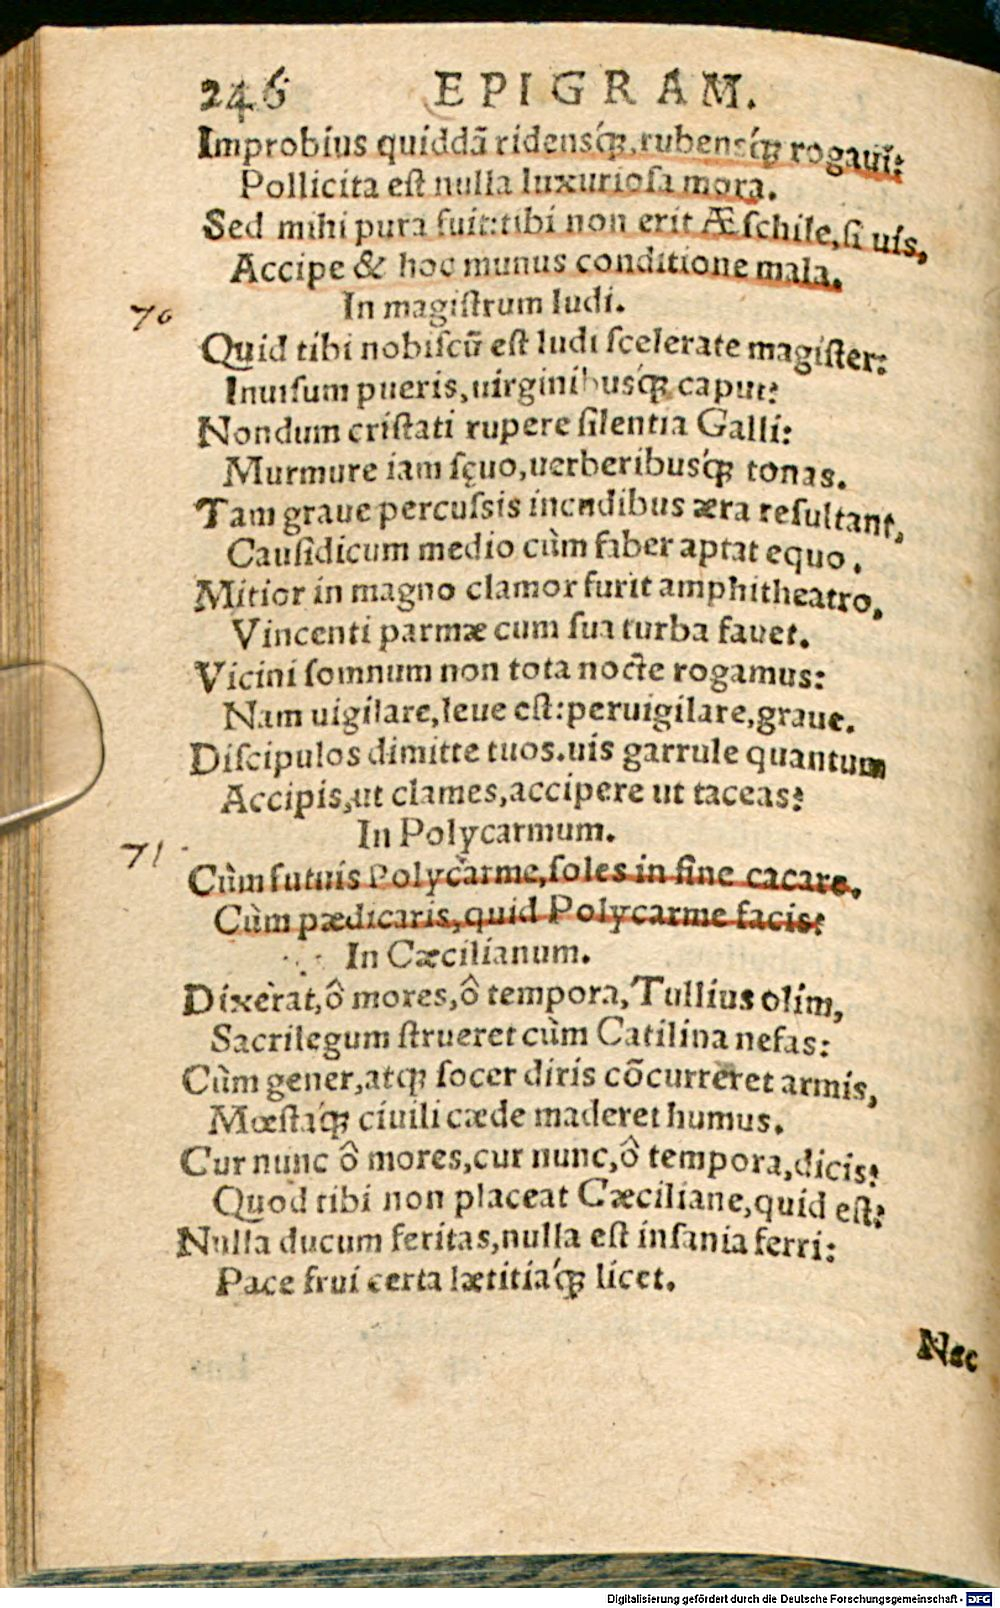 246 EPIGRAM.
Improbius quiddā ridensq́ꝫ, rubensq́ꝫ rogaui:
Pollicita eſt nulla luxurioſa mora.
Sed mihi pura fuit: tibi non erit Æſchile, ſi uis,
Accipe & hoc munus conditione mala.
In magiſtrum ludi.
70
Quid tibi nobiſcũ eſt ludi ſcelerate magiſter:
Inuiſum pueris, uirginibusq́ꝫ caput?
Nondum criſtati rupere ſilentia Galli:
Murmure iam ſęuo, uerberibusq́ꝫ tonas.
Tam graue percuſsis incudibus æra reſultant,
Cauſidicum medio cùm faber aptat equo.
Mitior in magno clamor furit amphitheatro,
Vincenti parmæ cum ſua turba fauet.
Vicini ſomnum non tota nocte rogamus:
Nam uigilare, leue eſt: peruigilare, graue.
Diſcipulos dimitte tuos. uis garrule quantum
Accipis, ut clames, accipere ut taceas?
In Polycarmum.
71
Cùm futuis Polycarme, ſoles in fine cacare.
Cùm pædicaris, quid Polycarme facis?
In Cæcilianum.
Dixerat, ô mores, ô tempora, Tullius olim,
Sacrilegum ſtrueret cùm Catilina nefas:
Cùm gener, atqꝫ ſocer diris cōcurreret armis,
Mœſtaq́ꝫ ciuili cæde maderet humus.
Cur nunc ô mores, cur nunc, ô tempora, dicis?
Quod tibi non placeat Cæciliane, quid eſt?
Nulla ducum feritas, nulla eſt inſania ferri:
Pace frui certa lætitiaq́ꝫ licet.
Nec
Digitalisierung gefördert durch die Deutsche Forschungsgemeinschaft - DFG